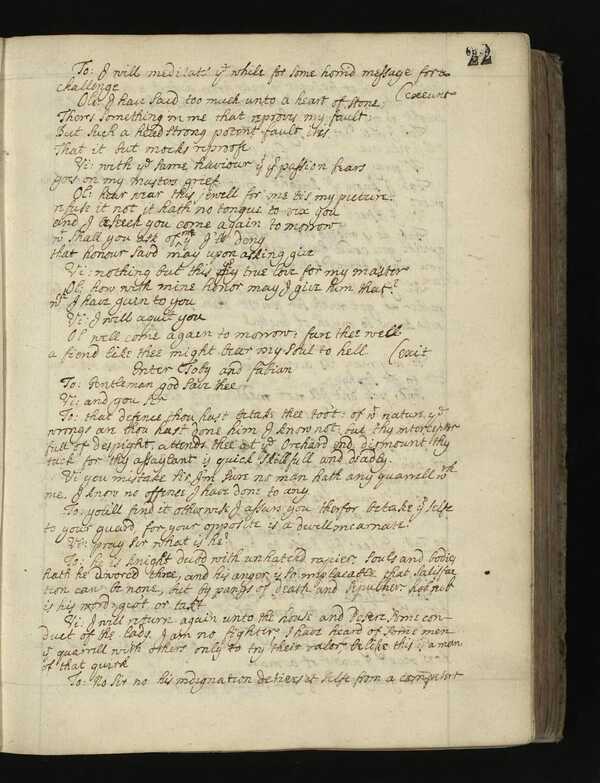 22
To: I will meditate ye while for some horrid message for a
challenge (exeunt
Ol: I have said too much unto a heart of stone,
Thers something in me that reproves my fault:
But such a headstrong potent fault tis
That it but mocks reproofe
Vi: with ye same haviour yt yr passion bears
goes on my masters grief
Ol: hear wear this jewell for me tis my picture
refuse it not it hath no tongue to vex you
and I beseech you come again to morrow
wt shall you ask of me yt I'le deny
that honour savd may upon asking give
Vi: nothing but this yr true love for my master
Ol: how with mine honor may I give him that
wch I have given to you
Vi: I will aquit you
Ol well come again to morrow: fare thee well
a fiend like thee might bear my soul to hell (exit
Enter Toby and fabian
To: Gentleman god save thee
Vi: and you sir
To: that defence thou hast betake thee too't: of wt nature ye
wrongs are thou hast done him I know not, but thy intercepter
full of despight, attends thee at ye Orchard end, dismount thy
tuck for thy assaylant is quick skillfull and deadly.
Vi you mistake sir I'm sure no man hath any quarrell wth
me. I know no offence I have done to any
To: you'll find it otherwise I assure you therfor betake yr selfe
to your guard, for your opposite is a devill incarnate.
Vi: pray sir what is he?
To: he is knight dubd with unhatchd rapier, souls and bodies
hath he divorcd three, and his anger is so implacable, that satisfac
tion can be none, but by pangs of death and sepulcher, hob nob
is his word, give't or take't
Vi: I will return again unto the house and desire some con-
duct of the lady. I am no fighter, I have heard of some men
yt quarrell with others only to try their valor belike this is a man
of that quirk
To: No sir no his indignation derives it selfe from a competent